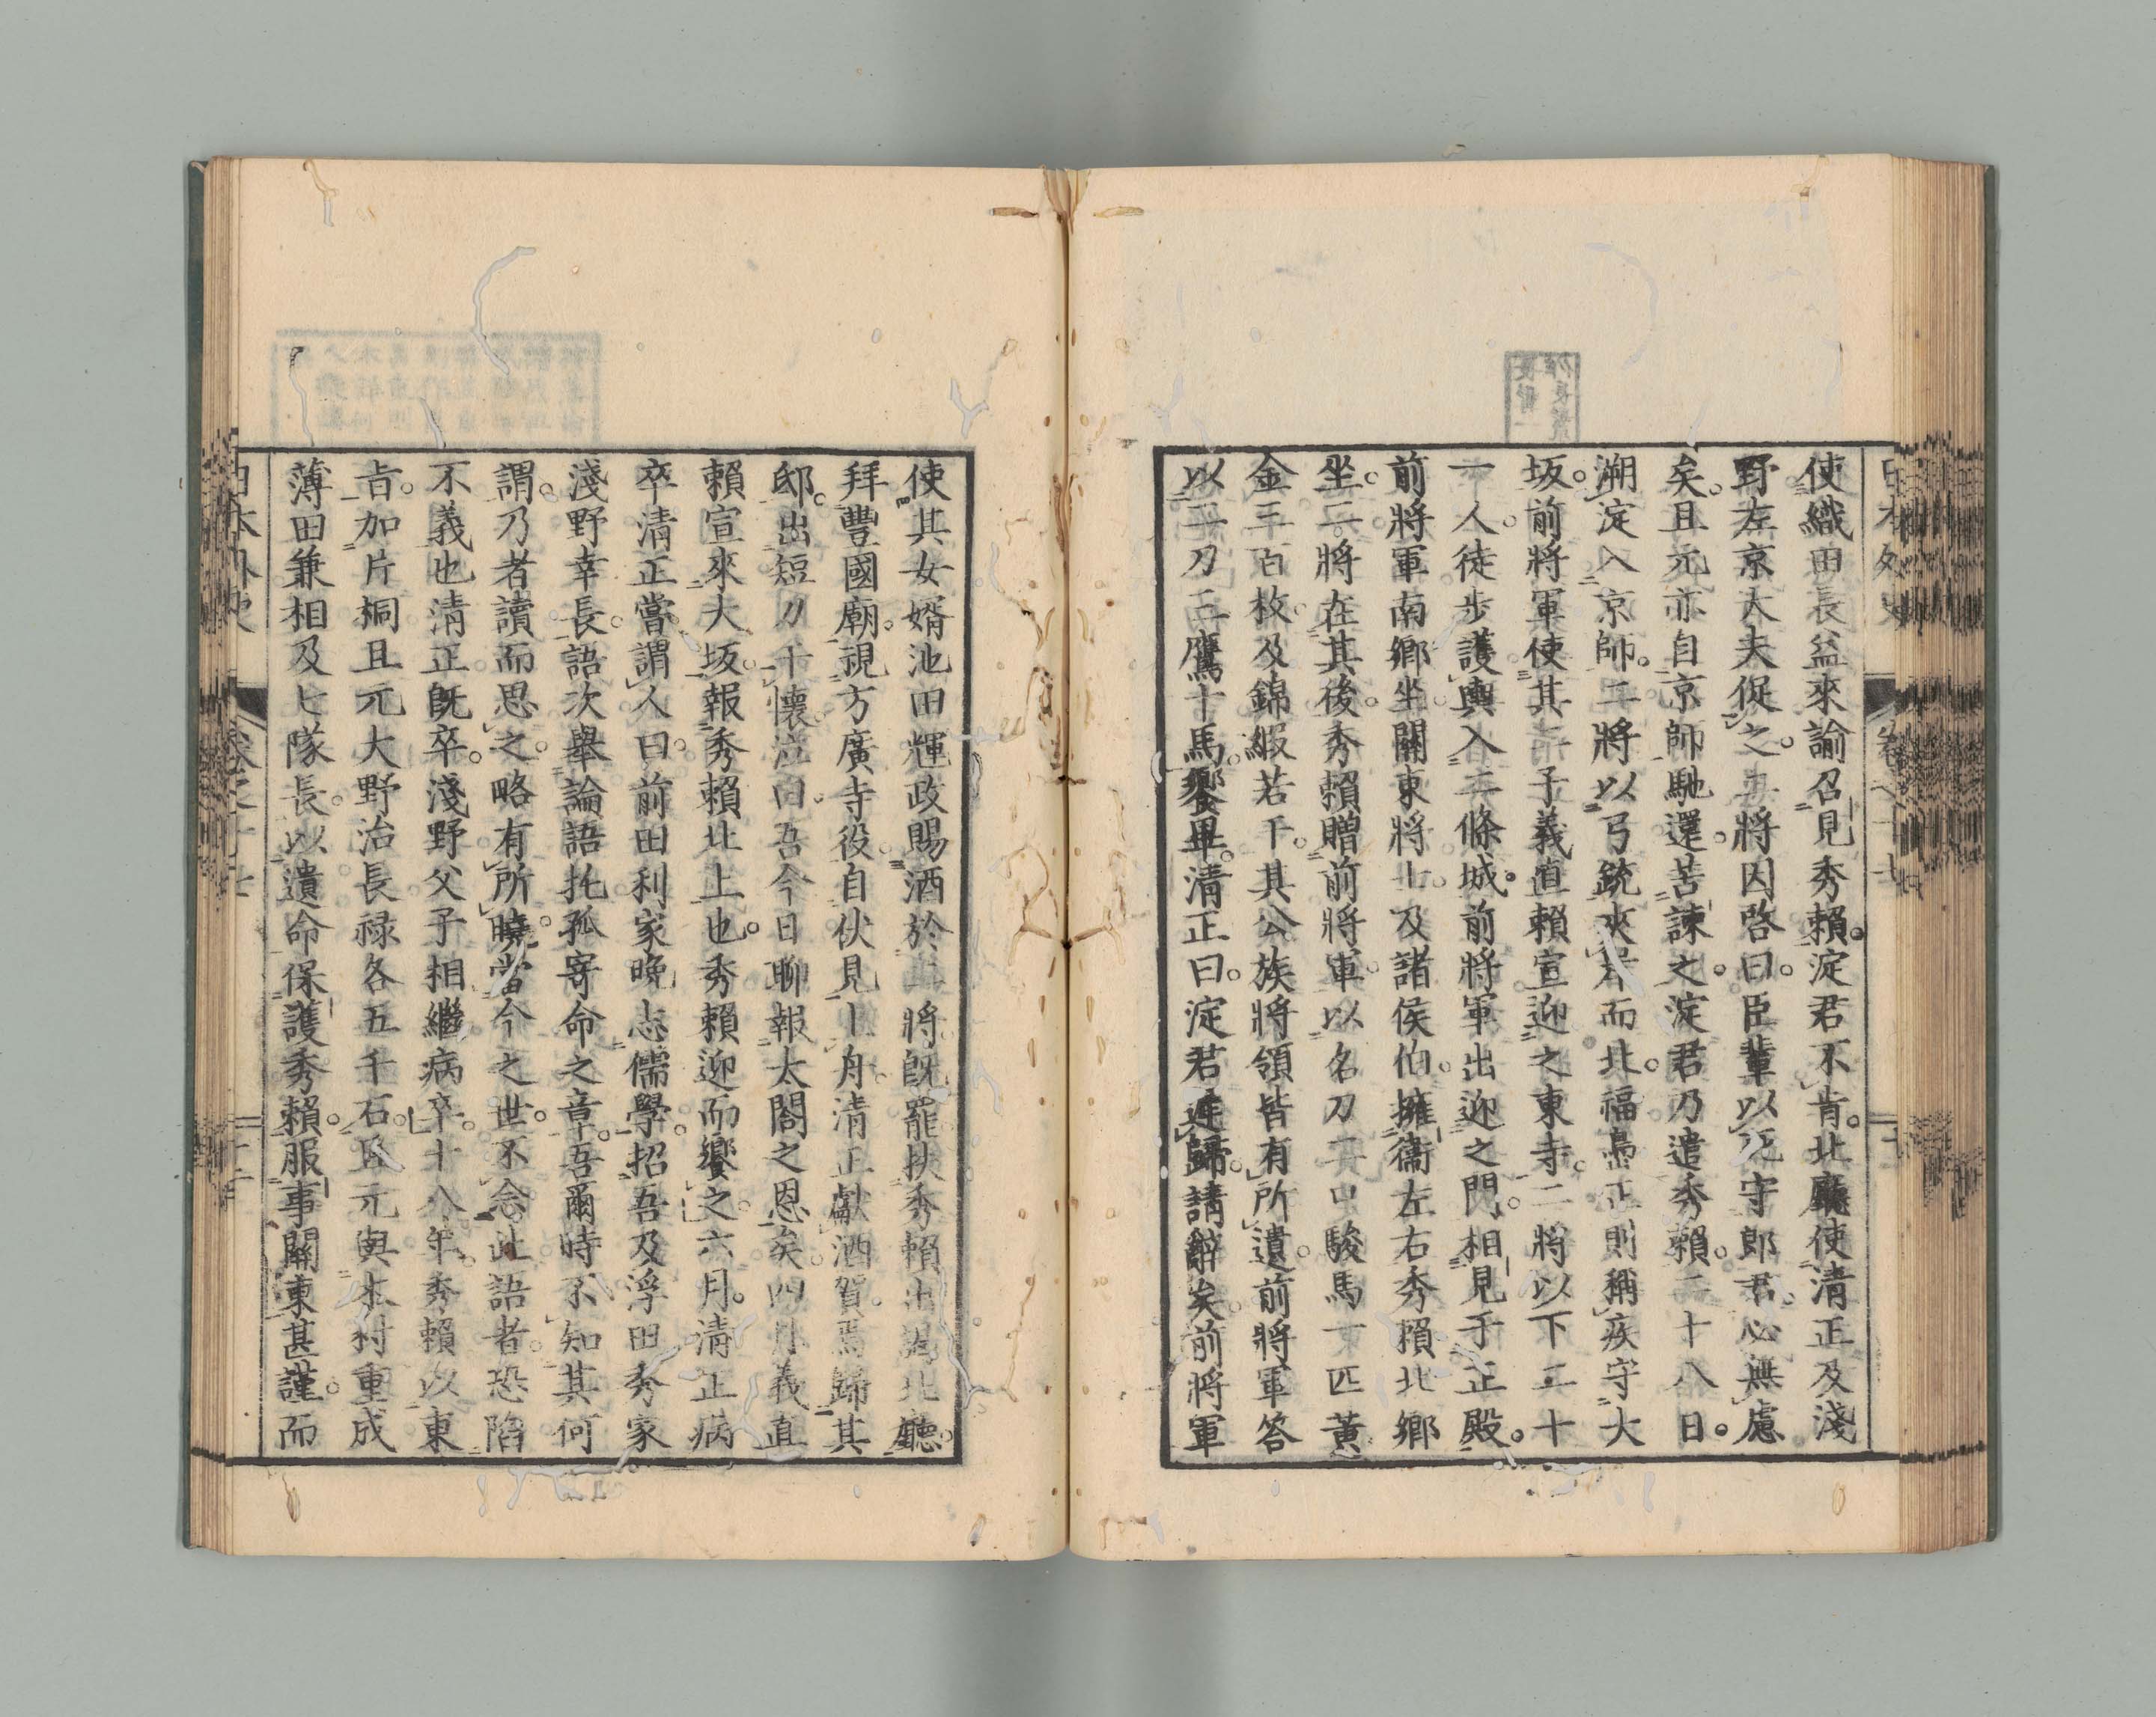 使織田長益來諭召見秀賴。淀君不肯。北廳使清正及淺
野左京大夫促之。二將因啓曰。臣輩以死守郎君。心無慮
矣。且元亦自京師馳還。苦諫之。淀君乃遣秀賴。二十八日。
溯淀入京師。二將以弓銃夾岸而北。福島正則稱疾守大
坂。前將軍使其子義直賴宣迎之東寺。二將以下二十
一人。徒步護輿入二條城。前將軍出迎之門。相見于正殿。
前將軍南鄉坐。關東將士。及諸侯伯。擁衞左右。秀賴北鄉
坐。二將在其後。秀賴贈前將軍。以名刀一口駿馬一匹黃
金三百枚。及錦緞若干。其公族將領皆有所遺。前將軍答
以二刀三鷹十馬。饗畢。清正曰。淀君遲歸。請辭矣。前將軍
使其女婿池田輝政賜酒於二將。既罷。扶秀賴出謁北廳。
拜豐國廟。視方廣寺役。自伏見上舟。清正獻酒賀焉。歸其
邸。出短刀于懷。泣曰。吾今日聊報太閤之恩矣。四月義直
賴宣來大坂。報秀賴北上也。秀賴迎而饗之。六月。清正病
卒。清正嘗謂人曰。前田利家晚志儒學。招吾及浮田秀家
淺野幸長。語次舉論語托孤寄命之章。吾爾時不知其何
謂。乃者讀而思之。略有所曉。當今之世。不念此語者。恐陷
不義也。清正既卒。淺野父子相繼病卒。十八年。秀賴以東
旨。加片桐且元大野治長祿各五千石。且元與木村重成
薄田兼相及七隊長。以遺命保護秀賴。服事關東甚謹。而